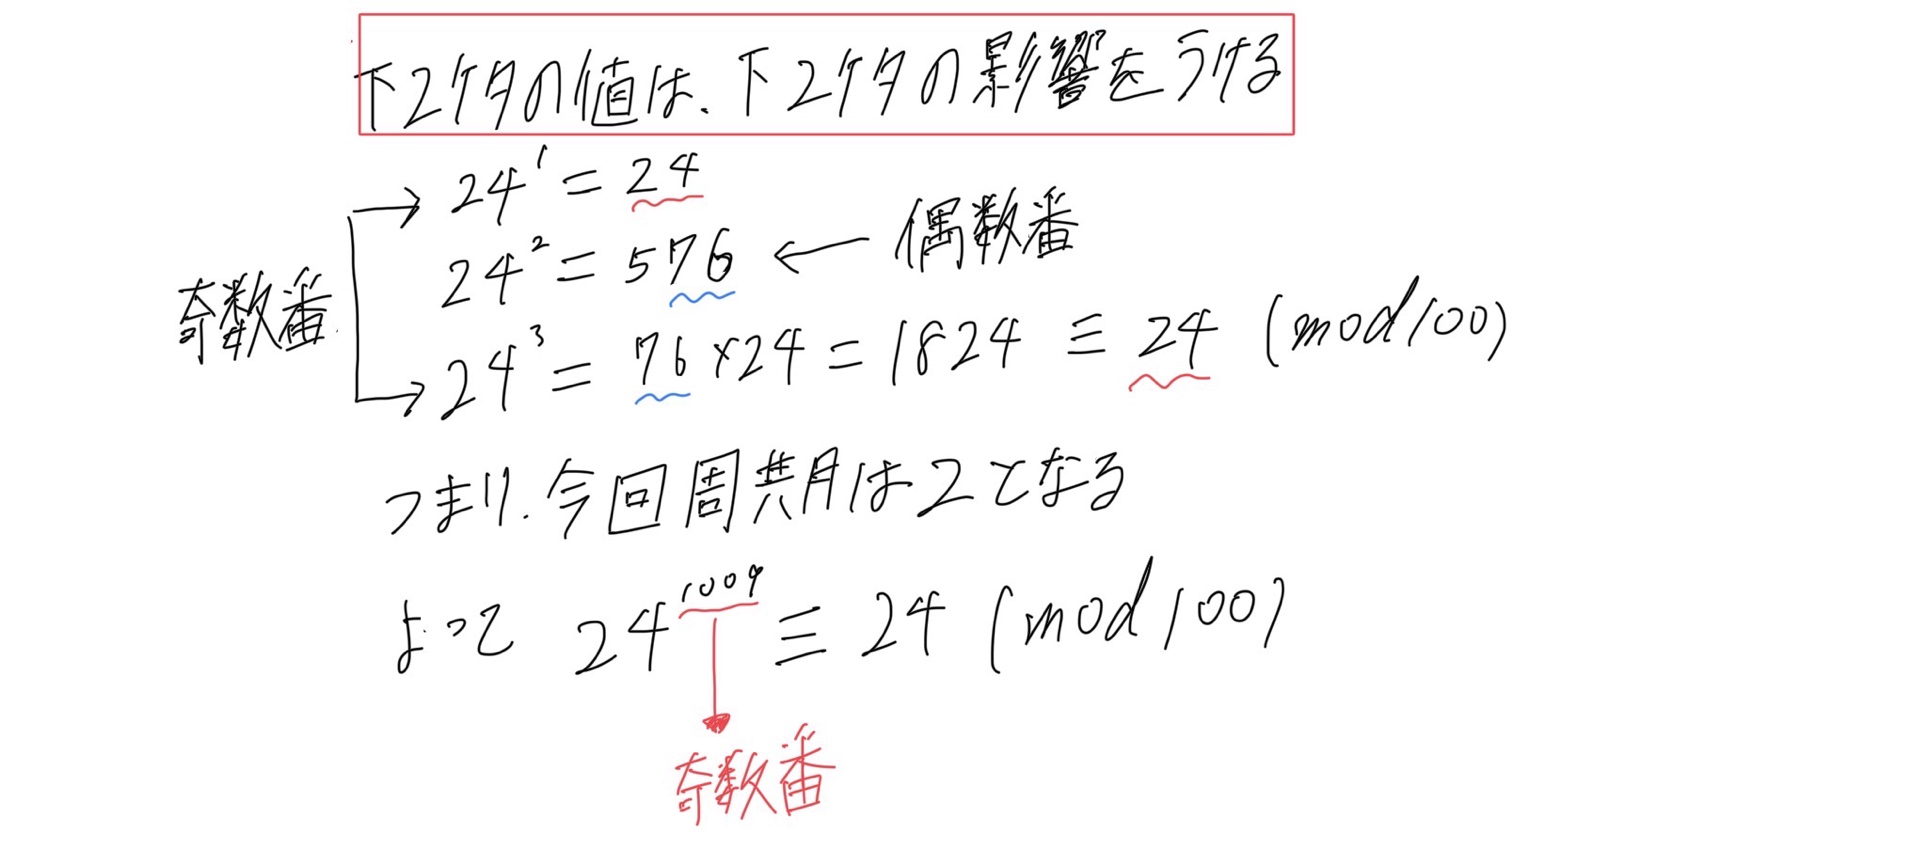 下2ケタの値は、下2ケタの影響をうける
24¹ = 24
24² = 576 ← 偶数番
奇数番
24³ = 76×24 = 1824 ≡ 24 (mod100)
つまり、今回周期は2となる
よって 24¹⁰⁰⁹ ≡ 24 (mod100)
奇数番